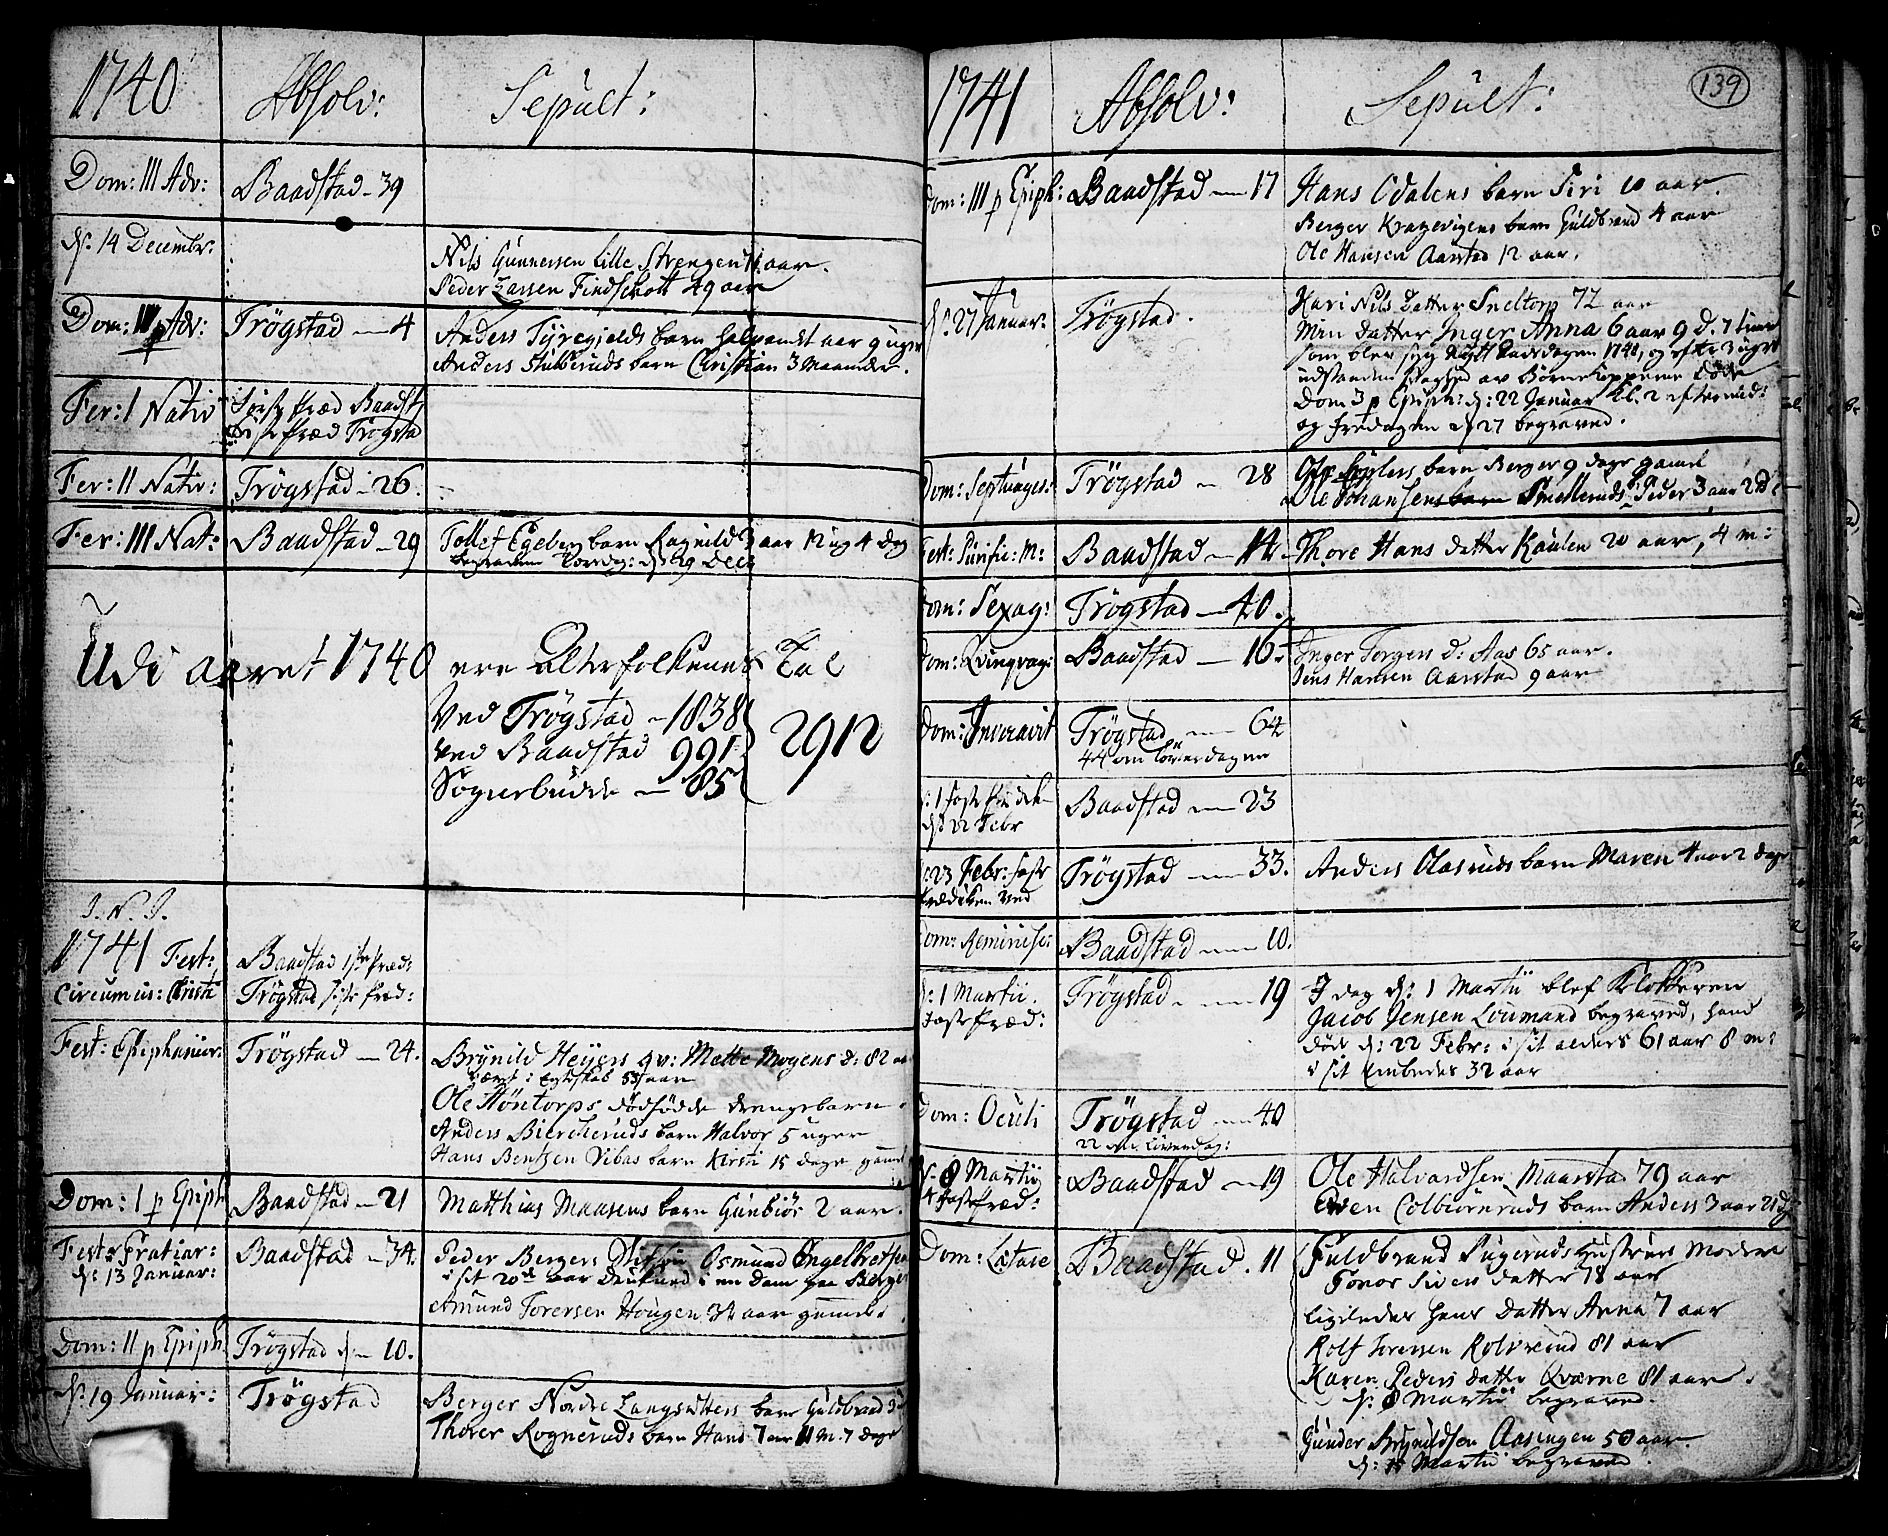 1740 Absolv: Sepult:
Dom: III Adv: Baadstad - 39
d: 14 Decembr:
Nils Gunnersen Lille Strengen aar.
Peder Larsen Findschott 49 aar
Dom: Adv: Trögstad — 4
Anders Tyregjelds barn halvandet aar 9 uger
Anders Stubberuds barn Christian 3 Maaneder.
Fer: I Nativ Baadst
Trögstad
Fer: II Nativ: Trögstad - 26.
Fer: III Nat: Baadstad - 29 Tollef Egeberg barn Ragnild aar 12 ug 4 dag
Udi aaret 1740 ere Alterfolkenes Tal
Ved Trögstad - 1838
Ved Baadstad 991 2912
Sognebudde — 85
I. N. J.
1741 Fest: Baadstad 1ste Præd:
Circumcis: Christi Trögstad siste Præd:
Fest: Epiphanior: Trögstad — 24. Brynild Heyers qv: Mette Mogens D: 82 aar
været i Egteskab 53 aar
Ole Höntorps dödfödde drengebarn.
Anders Biercheruds barn Halvor 5 uger
Hans Bentzen Vibas barn Kirsti 15 dage gammel
Dom: I p Epiph Baadstad - 21 Matthias Maasens barn Gunbiör 2 aar.
Fest: Gratiar: Baadstad - 34.
d: 13 Januar:
Peder Berger Osmund Engelbretsen
i sit 20de aar druknede i en dam paa Berger
Amund Torersen Hougen 34 aar gammel.
Dom: II p Epiph. Trögstad - 10.
d: 19 Januar: Trögstad Berger Nordre Langsetters barn Guldbrand
Thorer Rogneruds barn Hans 7 aar 11 M. 7 dage
1741 Absolv: Sepult: 139
Dom: III p Epiph: Baadstad — 17 Hans Odalens barn Siri 10 aar.
Berger Kragevigens barn Guldbrand 4 aar
Ole Hansen Aarstad 12 aar.
d: 27 Januar: Trögstad. Kari Nils Datter Sneltorp 72 aar
Min datter Inger Anna 6 aar 9 D. 7 timer
som blev syg Nytt aarsdagen 1741, og efter 3 ugers
udstanden svaghed av Børnekopperne døde
Dom 3 p Epiph: d: 22 Januar kl. 2 eftermid:
og fredagen d 27 begraved.
Dom: Septuages: Trögstad — 28 barn Berger 9 dage gammel
Ole Johansens barn Smelleruds Peder 3 aar
Fest: Purific: M: Baadstad — 14 Thore Hans datter Kaulen 20 aar, 4 m:
Dom: Sexag: Trögstad — 40.
Dom: Qvinqvag: Baadstad — 16. Inger Torgers d: Aas 65 aar.
Jens Hansen Aarstad 9 aar
Dom: Invocavit Trögstad — 64
44 om Löverdagen
d: 1 faste
d: 22 Febr Baadstad — 23
d: 23 Febr: faste
prædiken Ved Trögstad — 33. Anders Olasruds barn Maren 4 aar 2 dage
Dom: Reminisc: Baadstad — 10.
d: 1 Martii.
Faste Præd: Trögstad — 19 I dag d: 1 Martii blef Klokkeren
Jacob Jensen Loumand begraved, hand
döde d: 22 Febr: i sit alders 61 aar 8 m:
i sit Embedes 32 aar
Dom: Oculi Trögstad — 40
22 om Löverdag:
d: 8 Martii
faste præd: Baadstad — 19 Ole Halvardsen Maarstad 79 aar
Even Colbiörnruds barn Anders 3 aar 21 d:
Dom: Lætare Baadstad. 11 Guldbrand Sugeruds Hustrues Moder
Toner Sivers datter 78 aar
ligeledes hans datter Anna 7 aar
Rolf Torersen Rolvsrud 81 aar
Karen Peders datter Qværne 81 aar.
d: 8 Martii begraved.
Gunder Brynildsen Aasengen 50 aar.
d: 15 Martii begraved.